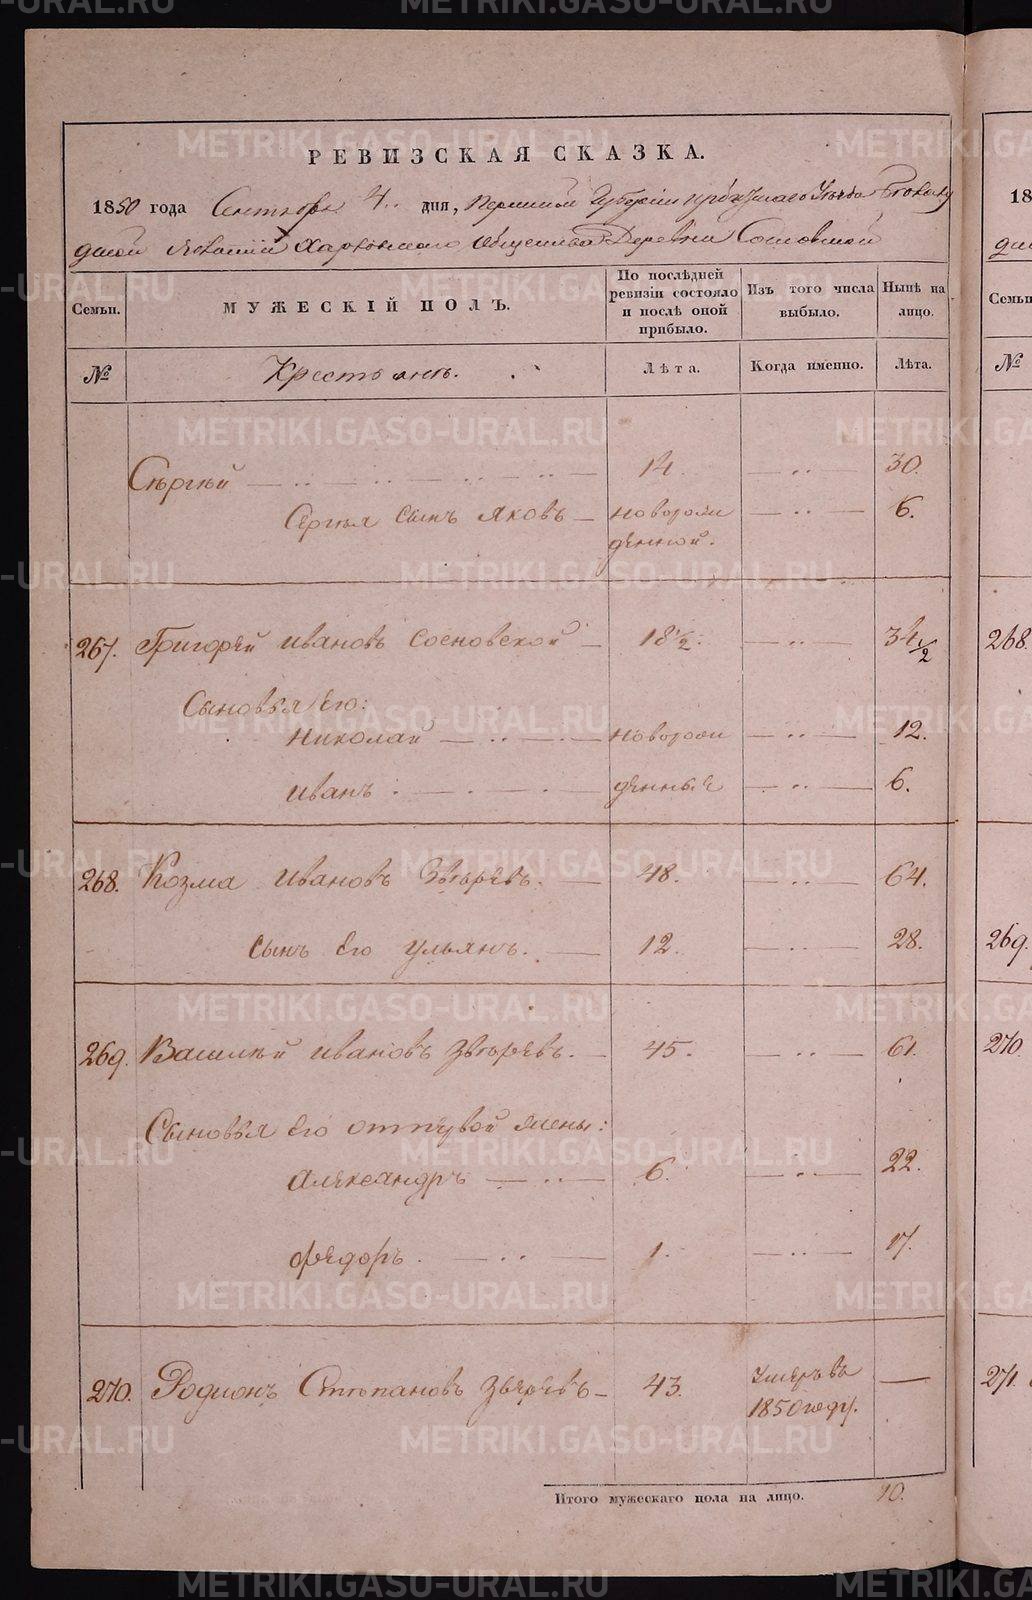 METRIKI.GASO-URAL.RU
РЕВИЗСКАЯ СКАЗКА.
1850 года Сентября 4 дня, Пермской Губерніи Ирбитскаго Уѣзда
Харловскаго Общества Деревни Сосновской
Семьи. МУЖЕСКІЙ ПОЛЪ. По послѣдней ревизіи состояло и послѣ оной прибыло. Изъ того числа выбыло. Нынѣ на лицо.
№ Крестьянъ. Лѣта. Когда именно. Лѣта.
Сергѣй 14. 30.
Сергѣя сынъ Яковъ новорож 6.
денной.
267. Григорей Ивановъ Сосновской 18 1/2. 34 1/2
Сыновья Его:
Николай новорож 12.
Иванъ денные 6.
268. Козма Ивановъ Звѣревъ. 48. 64.
Сынъ Его Ульянъ. 12. 28.
269. Василей Ивановъ Звѣревъ. 45. 61.
Сыновья Его отпервой жены:
Александръ 6. 22.
Федоръ. 1. 17.
270. Родионъ Степановъ Звѣревъ 43. Умеръ въ
1850 году.
Итого мужескаго пола на лицо. 10.
18
Семьи
№
268.
269.
270.
271.